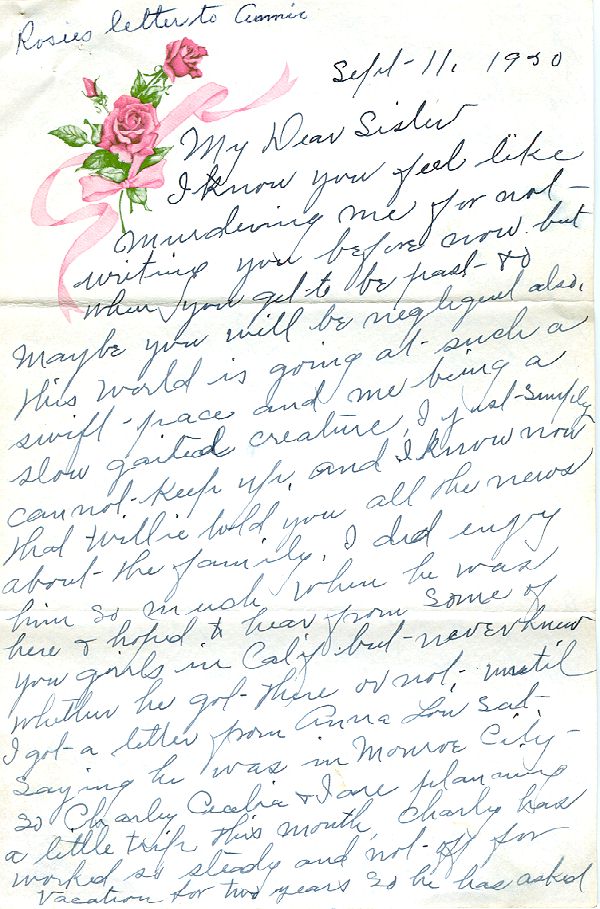 Rosies letter to Annie
Sept-11, 1950
My Dear Sister
I know you feel like
Murdering me for not-
writing you before now but
when you get-to be past-
Maybe you will be negligent also.
this World is going at-such a
swift-pace and me being a
slow gaited creature, I just-simply
cannot-keep up, and I know now
that Willie told you all the news
about-the family. I did enjoy
him so much when he was
here & hoped to hear from some of
you girls in Calif but-never knew
whether he got-there or not, until
I got-a letter from Anna Lou Sat-
Saying he was in Monroe City-
So Charly Cecelia & I are planning
a little trip this month, Charly has
worked so steady and not-off for
Vacation for two years so he has asked